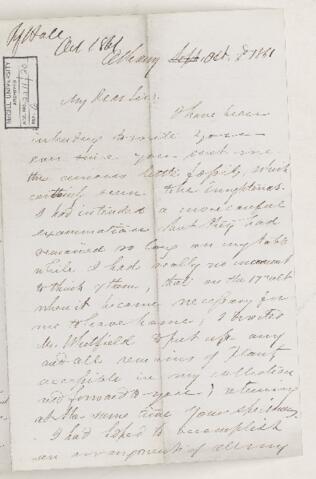 Oct 1861
Albany Sept Oct. 1861
McGILL UNIVERSITY
ARCHIVES
My dear Sir:
I have been
intending to write you
ever since you sent me
the curious little fossils, which
certainly seem
I had intended a more careful
examination but they had
remained so long on my table
while I had really no moment
to think of them, that on the 17th ult
when it became necessary for
me to leave home, I
Mr. Whitfield to put up any
and all remains of Plants
accessible in my collection
and forward to you; returning
at the same time your specimens.
I had hoped to accomplish
an arrangement of all my